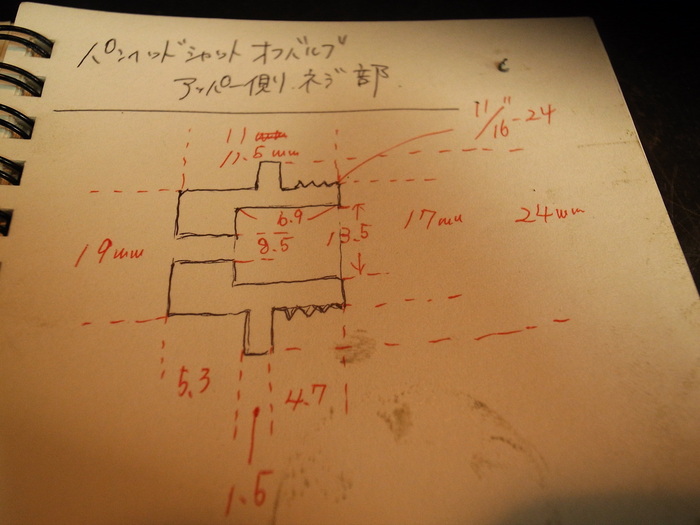 パンヘッドシャット オフバルブ
アッパー側 ネジ部
11
11.5mm
11/16"-24
6.9
8.5
13.5
17mm
24mm
19mm
5.3
4.7
1.5